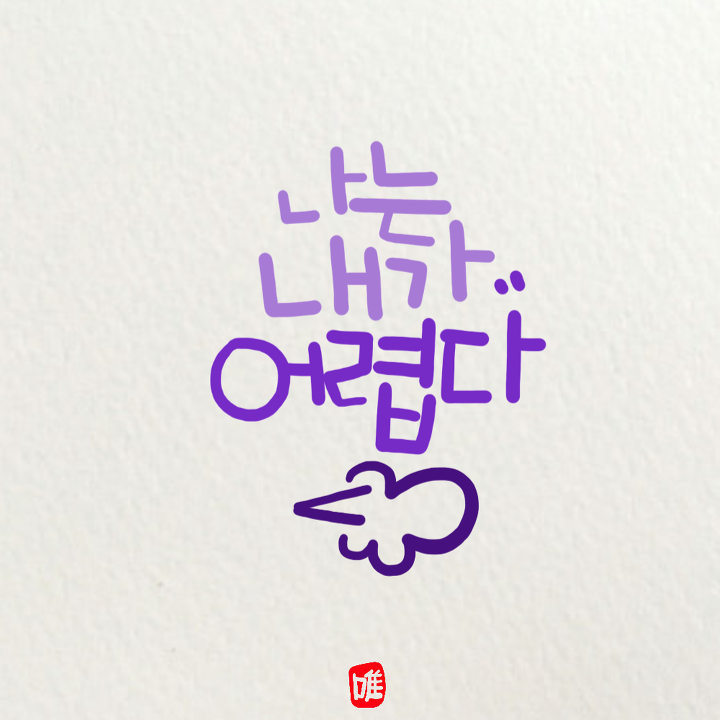 나는
내가
어렵다
唯